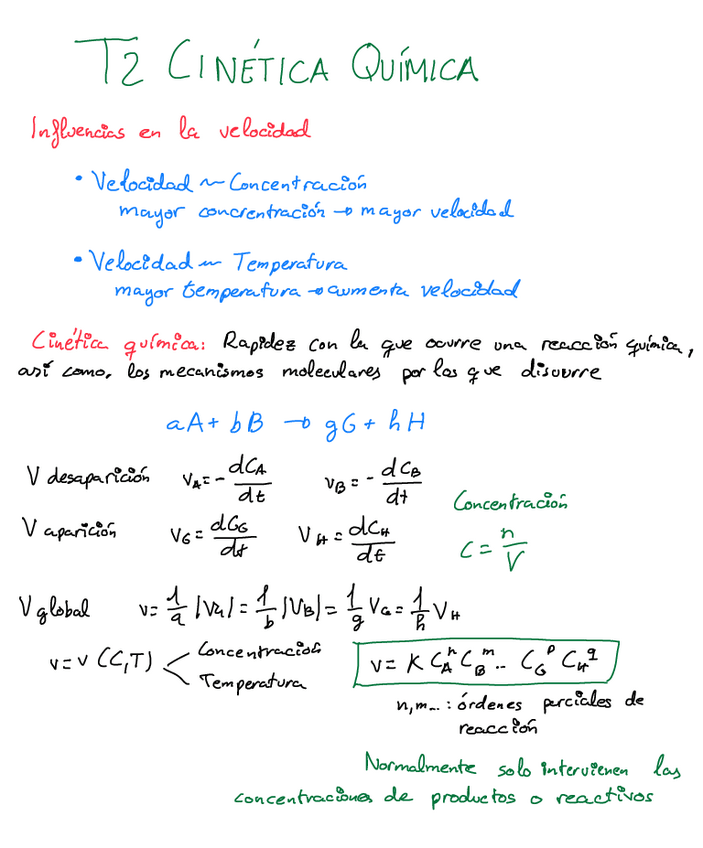 T2 CINÉTICA QUÍMICA
Influencias en la velocidad
• Velocidad ~ Concentración
mayor concrentración → mayor velocidad
• Velocidad ~ Temperatura
mayor temperatura → aumenta velocidad
Cinética química: Rapidez con la que ocurre una reacción química,
así como, los mecanismos moleculares por los que discurre
aA + bB → gG + hH
V desaparición v_A = - dC_A/dt v_B = - dC_B/dt
Concentración
V aparición v_G = dG_G/dt v_H = dC_H/dt
C = n/V
V global v = 1/a |v_A| = 1/b |v_B| = 1/g v_G = 1/h v_H
v = v (C,T) < Concentración
Temperatura
v = K C_A^n C_B^m ... C_G^p C_H^q
n, m... : órdenes parciales de
reacción
Normalmente solo intervienen las
concentraciones de productos o reactivos